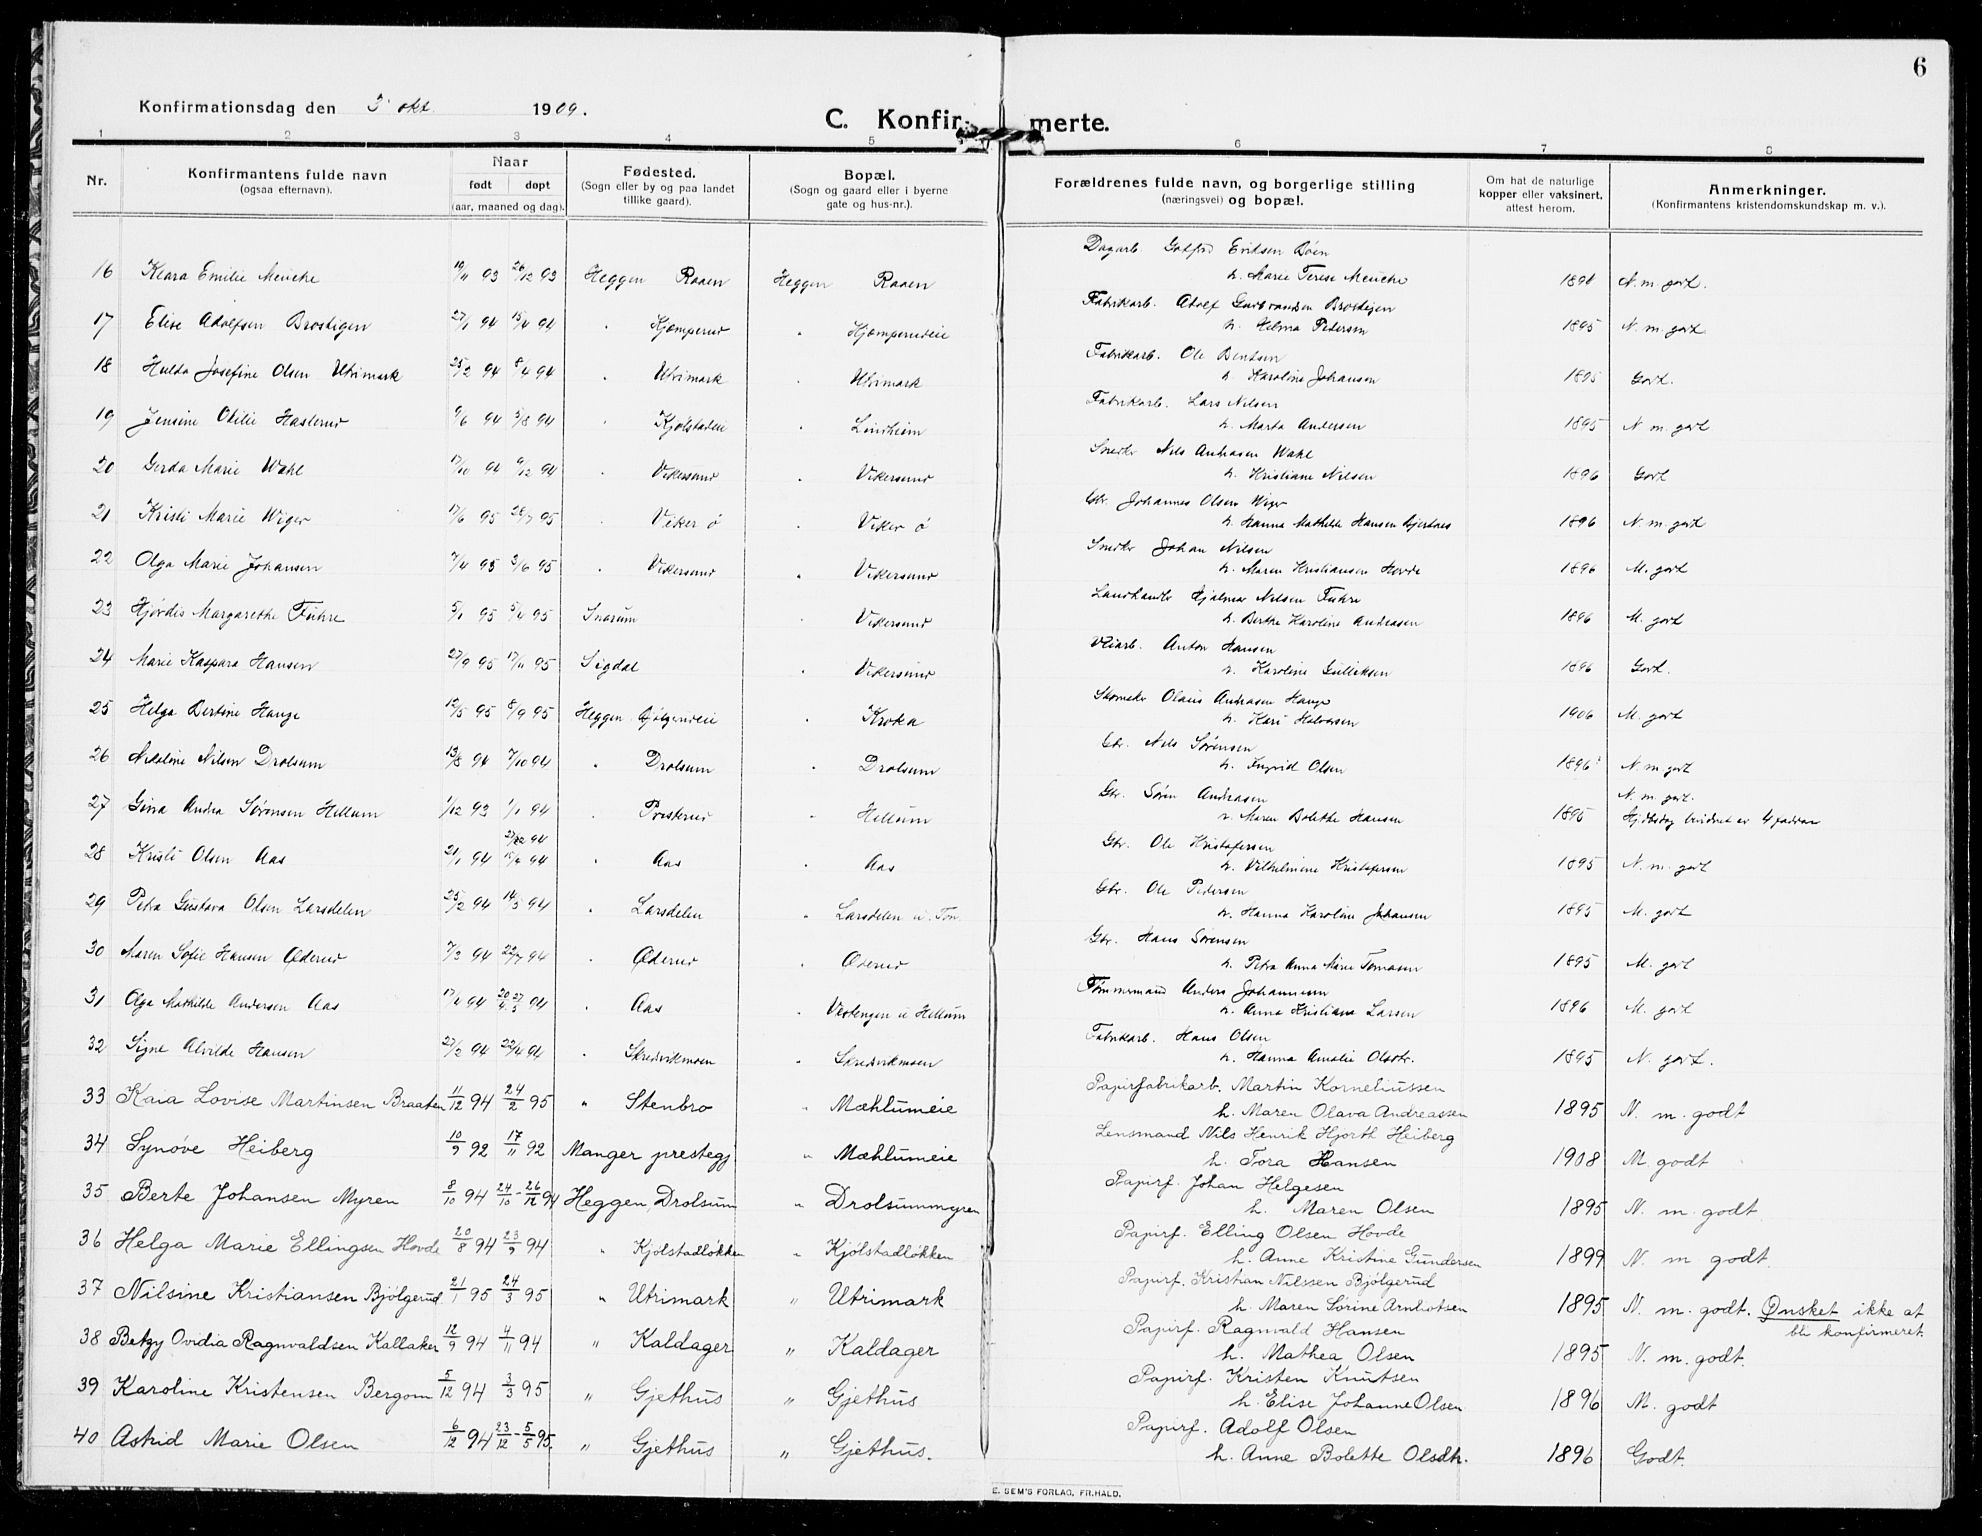 6
Konfirmationsdag den 3 okt. 1909.
C. Konfirmerte.
1 2 3 4 5 6 7 8
Nr. Konfirmantens fulde navn (ogsaa efternavn). Naar født døpt (aar, maaned og dag). Fødested. (Sogn eller by og paa landet tillike gaard). Bopæl. (Sogn og gaard eller i byerne gate og hus-nr.). Forældrenes fulde navn, og borgerlige stilling (næringsvei) og bopæl. Om hat de naturlige kopper eller vaksinert, attest herom. Anmerkninger. (Konfirmantens kristendomskundskap m. v.).
Dagarb. Gotfred Eriksen Böen
16 Klara Emilie Meucke 19/11 93 26/12 93 Heggen Raaen Heggen Raaen h. Marie Terese Meucke 1898 N. m. godt.
Fabrikarb. Adolf Gulbrandsen Brostigen
17 Elise Adolfsen Brostigen 27/1 94 15/4 94 " Kjæmperud " Kjæmperudeie h. Helma Pedersen 1895 N. m. godt
Fabrikarb. Ole Bentsen
18 Hulda Josefine Olsen Utrimark 25/2 94 8/4 94 " Utrimark " Utrimark h. Karoline Johansen 1895 Godt.
Fabrikarb. Lars Nilsen
19 Jensine Otilie Haslerud 9/6 94 5/8 94 " Kjølstadeie " Lindheim h. Marta Andersen 1895 N m. godt
Snedkr Nils Andreasen Wahl
20 Gerda Marie Wahl 17/10 94 9/12 94 " Vikersund " Vikersund h. Kristiane Nilsen 1896 Godt
Gbr. Johannes Olsen Wiger
21 Kristi Marie Wiger 17/6 95 28/7 95 " Viker ö " Viker ö h. Hanna Mathilde Hansen Gjertnes 1896 N. m. godt
Snedkr Johan Nilsen
22 Olga Marie Johansen 7/4 95 3/6 95 " Vikersund " Vikersund h. Maren Kristiansen Hovde 1896 M. godt
Landhandlr Hjalmar Nilsen Fuhre
23 Hjördis Margarethe Fuhre 5/1 95 5/4 95 Snarum " Vikersund h. Berthe Karoline Andreasen 1896 M. godt
Veiarb. Anton Hansen
24 Marie Kaspara Hansen 27/9 95 17/11 95 Sigdal " Vikersund h. Karoline Gulliksen 1896 Godt.
Skomakr Olaus Andreasen Hauge
25 Helga Bertine Hauge 12/5 95 8/9 95 Heggen Bjölgerudeie " Kroka h. Kari Halvorsen 1906 M. godt
Gbr. Nils Sørensen
26 Nikoline Nilsen Drolsum 13/8 94 7/10 94 " Drolsum " Drolsum h. Ingrid Olsen 1896 N. m. godt
Gbr. Søren Andreasen N. m. godt.
27 Gina Andrea Sørensen Hellum 1/12 93 1/1 94 " Prosterud " Hellum h. Maren Bolette Hansen 1895 Hjdbsdag bevidnet av 4 fadrar
Gbr. Ole Kristofersen
28 Kristi Olsen Aas 21/1 94 15/4 94 " Aas " Aas h. Vilhelmine Kristofersen 1895 N. m. godt
Gbr. Ole Pedersen
29 Petra Gustava Olsen Larsdelen 25/2 94 14/5 94 " Larsdelen " Larsdelen u. Ton. h. Hanna Karoline Johansen 1895 M. godt
Gbr. Hans Sørensen
30 Maren Sofie Hansen Øderud 7/3 94 22/7 94 " Øderud " Øderud h. Petra Anna Marie Tomasen 1895 M. godt
Tømmermand Anders Johannesen
31 Olga Mathilde Andersen Aas 17/4 94 20/4 27/5 94 " Aas " Vestengen u Hellum h. Anna Kristiana Larsen 1896 M. godt
Fabrikarb. Hans Olsen
32 Signe Alvilde Hansen 27/2 94 22/4 94 " Skredvikmoen " Skredvikmoen h. Hanna Amalie Olsdtr. 1895 N. godt.
Papirfabrikarb. Martin Korneliussen
33 Kaia Lovise Martinsen Braaten 11/12 94 24/2 95 " Stenbro " Mæhlumeie h. Maren Olava Andreassen 1895 N. m. godt
Lensmand Nils Henrik Hjorth Heiberg
34 Synøve Heiberg 10/9 92 17/11 92 Manger prestegj. " Mæhlumeie h. Tora Hansen 1908 M. godt
Papirf. Johan Helgesen
35 Berte Johansen Myren 8/10 94 24/10 - 26/12 94 Heggen, Drolsum " Drolsummyren h. Maren Olsen 1895 N. m. godt
Papirf. Elling Olsen Hovde
36 Helga Marie Ellingsen Hovde 20/8 94 23/9 94 " Kjölstadløkken " Kjölstadløkken h. Anne Kristine Gundersen 1899 N. m godt.
Papirf. Kristian Nilssen Bjölgerud
37 Nilsine Kristiansen Bjölgerud 21/1 95 24/3 95 " Utrimark " Utrimark h. Maren Sörine Arnhotsen 1895 N. m. godt. Ønsket ikke at bli konfirmeret.
Papirf. Ragnvald Hansen
38 Betzy Ovidia Ragnvaldsen Kallaker 12/9 94 4/11 94 " Kaldager " Kaldager h. Mathea Olsen 1895 N. m. godt.
Papirf. Kristen Knutsen
39 Karoline Kristensen Bergom 5/12 94 3/3 95 " Gjethus " Gjethus h. Elise Johanne Olsen 1896 M. godt
Papirf. Adolf Olsen
40 Astrid Marie Olsen 6/12 94 23/12 - 5/5 95. " Gjethus " Gjethus. h. Anne Bolette Olsdtr. 1896 Godt.
E. SEM'S FORLAG, FR.HALD.